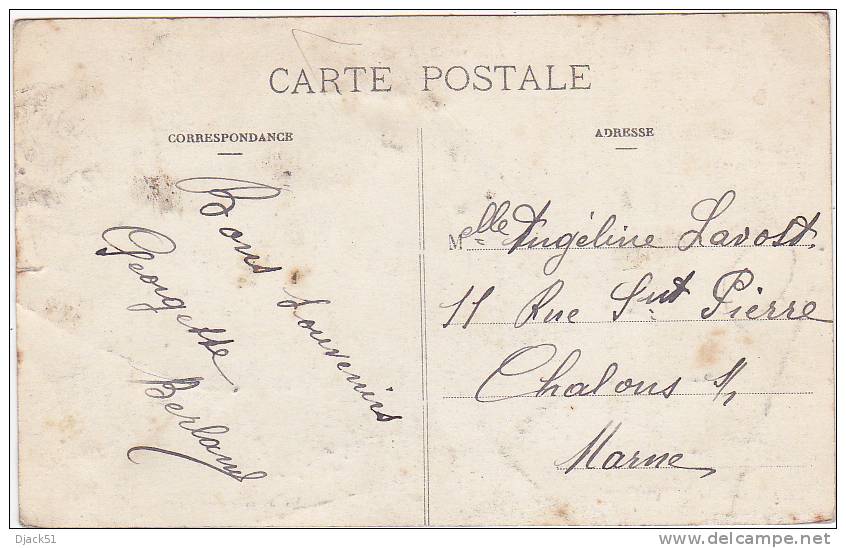 CARTE POSTALE
CORRESPONDANCE
ADRESSE
Bons Souvenirs
Georgette
Berland
Melle Angéline Lavost.
11 Rue Snt Pierre
Chalons s/
Marne
Djack51
delcampe.net